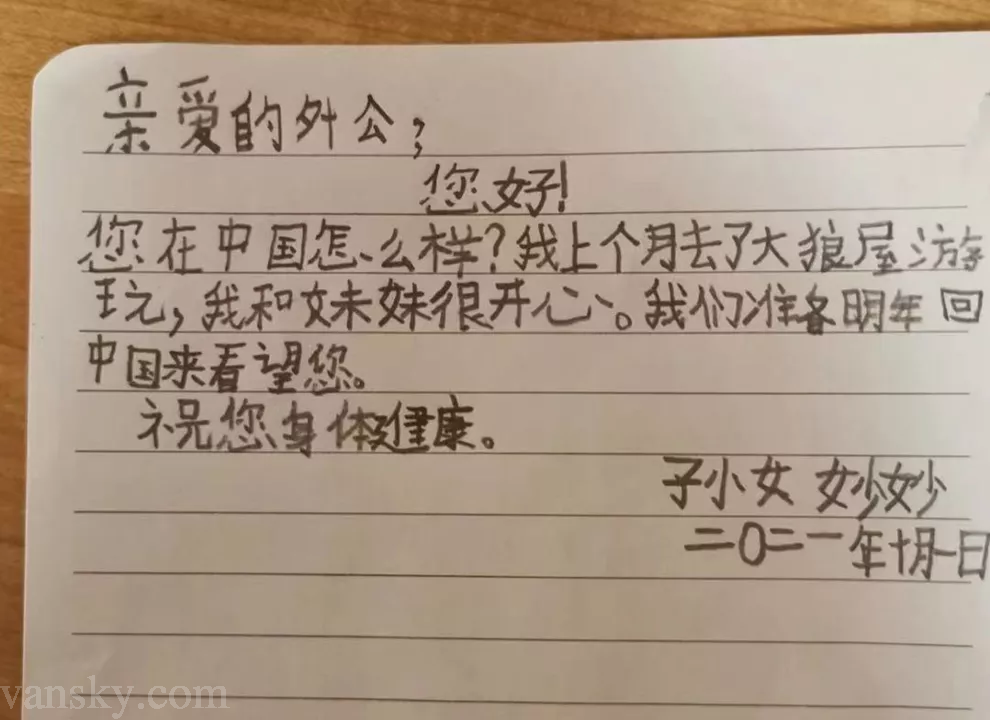 亲爱的外公；
您好！
您在中国怎么样？我上个月去了大狼屋游
玩，我和妹妹很开心。我们准备明年回
中国来看望您。
祝您身体健康。
孙女 妙妙
二〇二一年十月一日
vansky.com